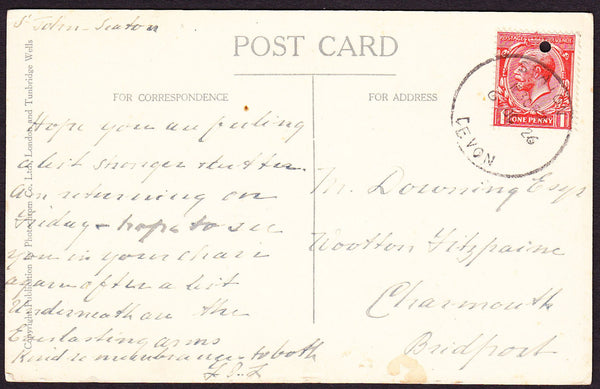 St John - Seaton
POST CARD
FOR CORRESPONDENCE
FOR ADDRESS
Copyright Publication by Photochrom Co. Ltd., London and Tunbridge Wells
POSTAGE REVENUE
ONE PENNY
DEVON
26
Hope you are feeling
a bit stronger &
am returning on
Friday - hope to see
you in your chair
again after a bit
Underneath are the
Everlasting arms
Kind remembrances to both
Mr. Downing Esqr
Wootton Fitzpaine
Charmouth
Bridport